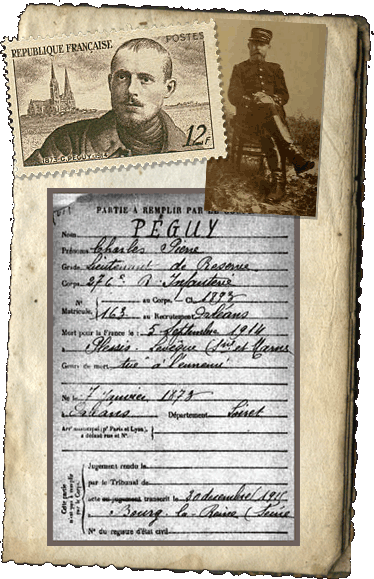 REPUBLIQUE FRANÇAISE
POSTES
12F
1873-C.PEGUY-1914
PARTIE À REMPLIR PAR LE
Nom PÉGUY
Prénoms Charles Pierre
Grade Lieutenant de Reserve
Corps 276e R. Infanterie
N° au Corps. — Cl. 1893
Matricule. 163 au Recrutement Orléans
Mort pour la France le 5 Septembre 1914
à Plessis
Genre de mort tué à l'ennemi
Né le 7 Janvier 1873
à Orléans Département Loiret
Arrt municipal (pr Paris et Lyon),
à défaut rue et N°.
Cette partie
n'est pas à remplir
par le Corps.
Jugement rendu le
par le Tribunal de
acte ou jugement transcrit le 30 decembre
Bourg-la-Reine (Seine
N° du registre d'état civil